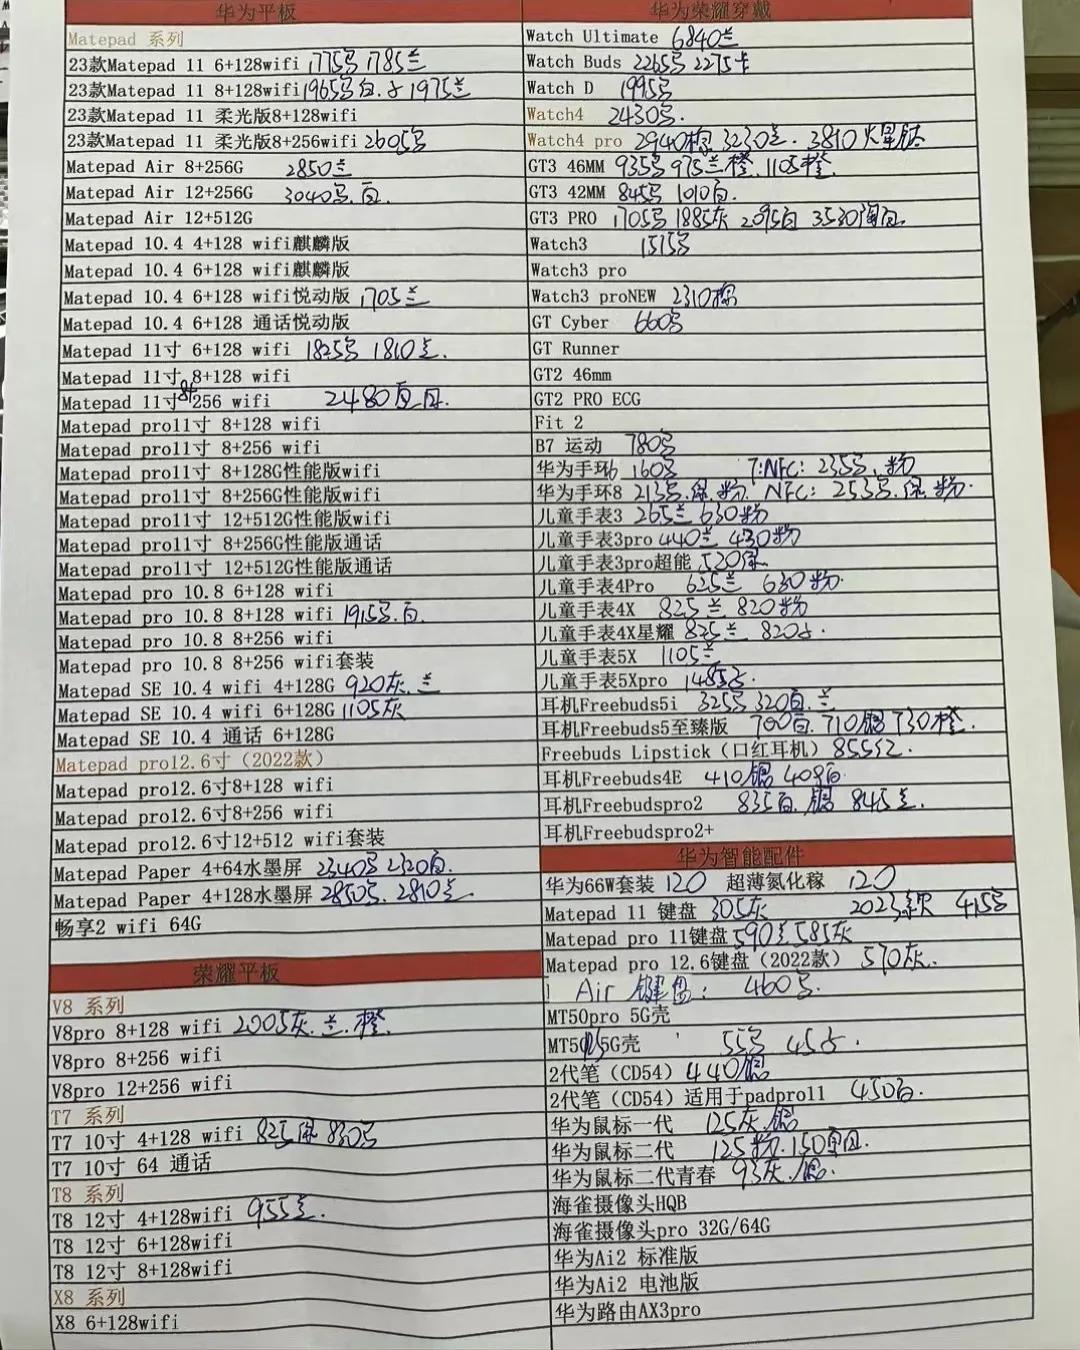 华为平板
Matepad 系列
23款Matepad 11 6+128wifi 1775 1785兰
23款Matepad 11 8+128wifi 1965 白. 1975兰
23款Matepad 11 柔光版8+128wifi
23款Matepad 11 柔光版8+256wifi 2605
Matepad Air 8+256G 2850兰
Matepad Air 12+256G 3040 白.
Matepad Air 12+512G
Matepad 10.4 4+128 wifi麒麟版
Matepad 10.4 6+128 wifi麒麟版
Matepad 10.4 6+128 wifi悦动版 1705兰
Matepad 10.4 6+128 通话悦动版
Matepad 11寸 6+128 wifi 1825 1810兰.
Matepad 11寸 8+128 wifi
Matepad 11寸 8+256 wifi 2480
Matepad pro11寸 8+128 wifi
Matepad pro11寸 8+256 wifi
Matepad pro11寸 8+128G性能版wifi
Matepad pro11寸 8+256G性能版wifi
Matepad pro11寸 12+512G性能版wifi
Matepad pro11寸 8+256G性能版通话
Matepad pro11寸 12+512G性能版通话
Matepad pro 10.8 6+128 wifi
Matepad pro 10.8 8+128 wifi 1915 白.
Matepad pro 10.8 8+256 wifi
Matepad pro 10.8 8+256 wifi套装
Matepad SE 10.4 wifi 4+128G 920灰.兰
Matepad SE 10.4 wifi 6+128G 1105灰
Matepad SE 10.4 通话 6+128G
Matepad pro12.6寸（2022款）
Matepad pro12.6寸8+128 wifi
Matepad pro12.6寸8+256 wifi
Matepad pro12.6寸12+512 wifi套装
Matepad Paper 4+64水墨屏 2340 2320白.
Matepad Paper 4+128水墨屏 2850. 2810兰
畅享2 wifi 64G
荣耀平板
V8 系列
V8pro 8+128 wifi 2005灰.兰.橙
V8pro 8+256 wifi
V8pro 12+256 wifi
T7 系列
T7 10寸 4+128 wifi 825绿 830
T7 10寸 64 通话
T8 系列
T8 12寸 4+128wifi 955兰.
T8 12寸 6+128wifi
T8 12寸 8+128wifi
X8 系列
X8 6+128wifi
华为荣耀穿戴
Watch Ultimate 6840兰
Watch Buds 2265 2275卡
Watch D 1995
Watch4 2430
Watch4 pro 2940棕 3230兰. 3810火星钛
GT3 46MM 935 975兰橙. 1105橙.
GT3 42MM 845 1010白.
GT3 PRO 1705 1885灰 2095白 3530陶白.
Watch3 1515
Watch3 pro
Watch3 proNEW 2310棕
GT Cyber 660
GT Runner
GT2 46mm
GT2 PRO ECG
Fit 2
B7 运动 780
华为手环6 160 7:NFC: 235.粉
华为手环8 213.绿.粉. NFC: 253.绿.粉.
儿童手表3 265兰 630粉
儿童手表3pro 440兰 430粉
儿童手表3pro超能 520绿
儿童手表4Pro 625兰 630粉.
儿童手表4X 825兰 820粉
儿童手表4X星耀 825兰 820.
儿童手表5X 1105兰
儿童手表5Xpro 1485.
耳机Freebuds5i 325 320白.兰
耳机Freebuds5至臻版 700白. 710银 730橙.
Freebuds Lipstick（口红耳机）855红.
耳机Freebuds4E 410银 409白.
耳机Freebudspro2 835白.银 845兰.
耳机Freebudspro2+
华为智能配件
华为66W套装 120 超薄氮化稼 120
Matepad 11 键盘 305灰 2023款 415
Matepad pro 11键盘 590兰 585灰
Matepad pro 12.6键盘（2022款） 570灰.
Air 键盘: 460.
MT50pro 5G壳
MT50 5G壳 55 45.
2代笔（CD54）440银
2代笔（CD54）适用于padpro11 450白.
华为鼠标一代 125灰.银
华为鼠标二代 125粉. 150.
华为鼠标二代青春 93灰.银.
海雀摄像头HQB
海雀摄像头pro 32G/64G
华为Ai2 标准版
华为Ai2 电池版
华为路由AX3pro